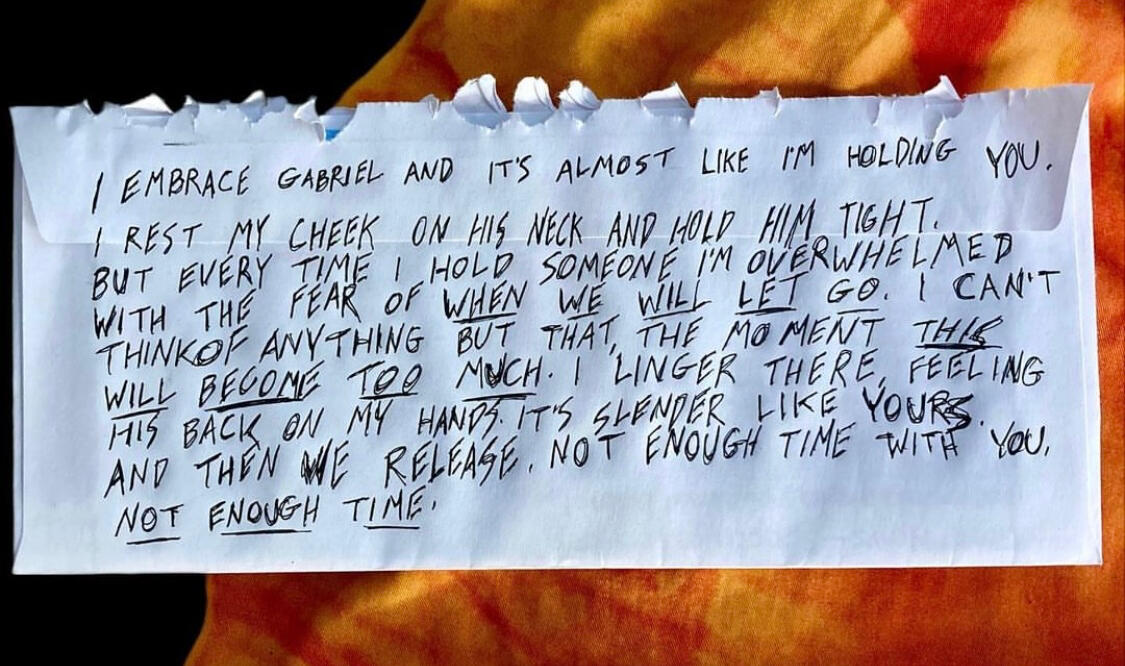 I EMBRACE GABRIEL AND IT'S ALMOST LIKE I'M HOLDING YOU.
I REST MY CHEEK ON HIS NECK AND HOLD HIM TIGHT.
BUT EVERY TIME I HOLD SOMEONE I'M OVERWHELMED
WITH THE FEAR OF WHEN WE WILL LET GO. I CAN'T
THINK OF ANYTHING BUT THAT, THE MOMENT THIS
WILL BECOME TOO MUCH. I LINGER THERE, FEELING
HIS BACK ON MY HANDS. IT'S SLENDER LIKE YOURS.
AND THEN WE RELEASE. NOT ENOUGH TIME WITH YOU.
NOT ENOUGH TIME.